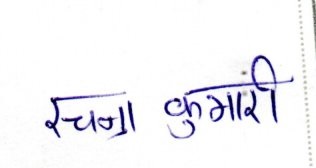 रचना कुमारी